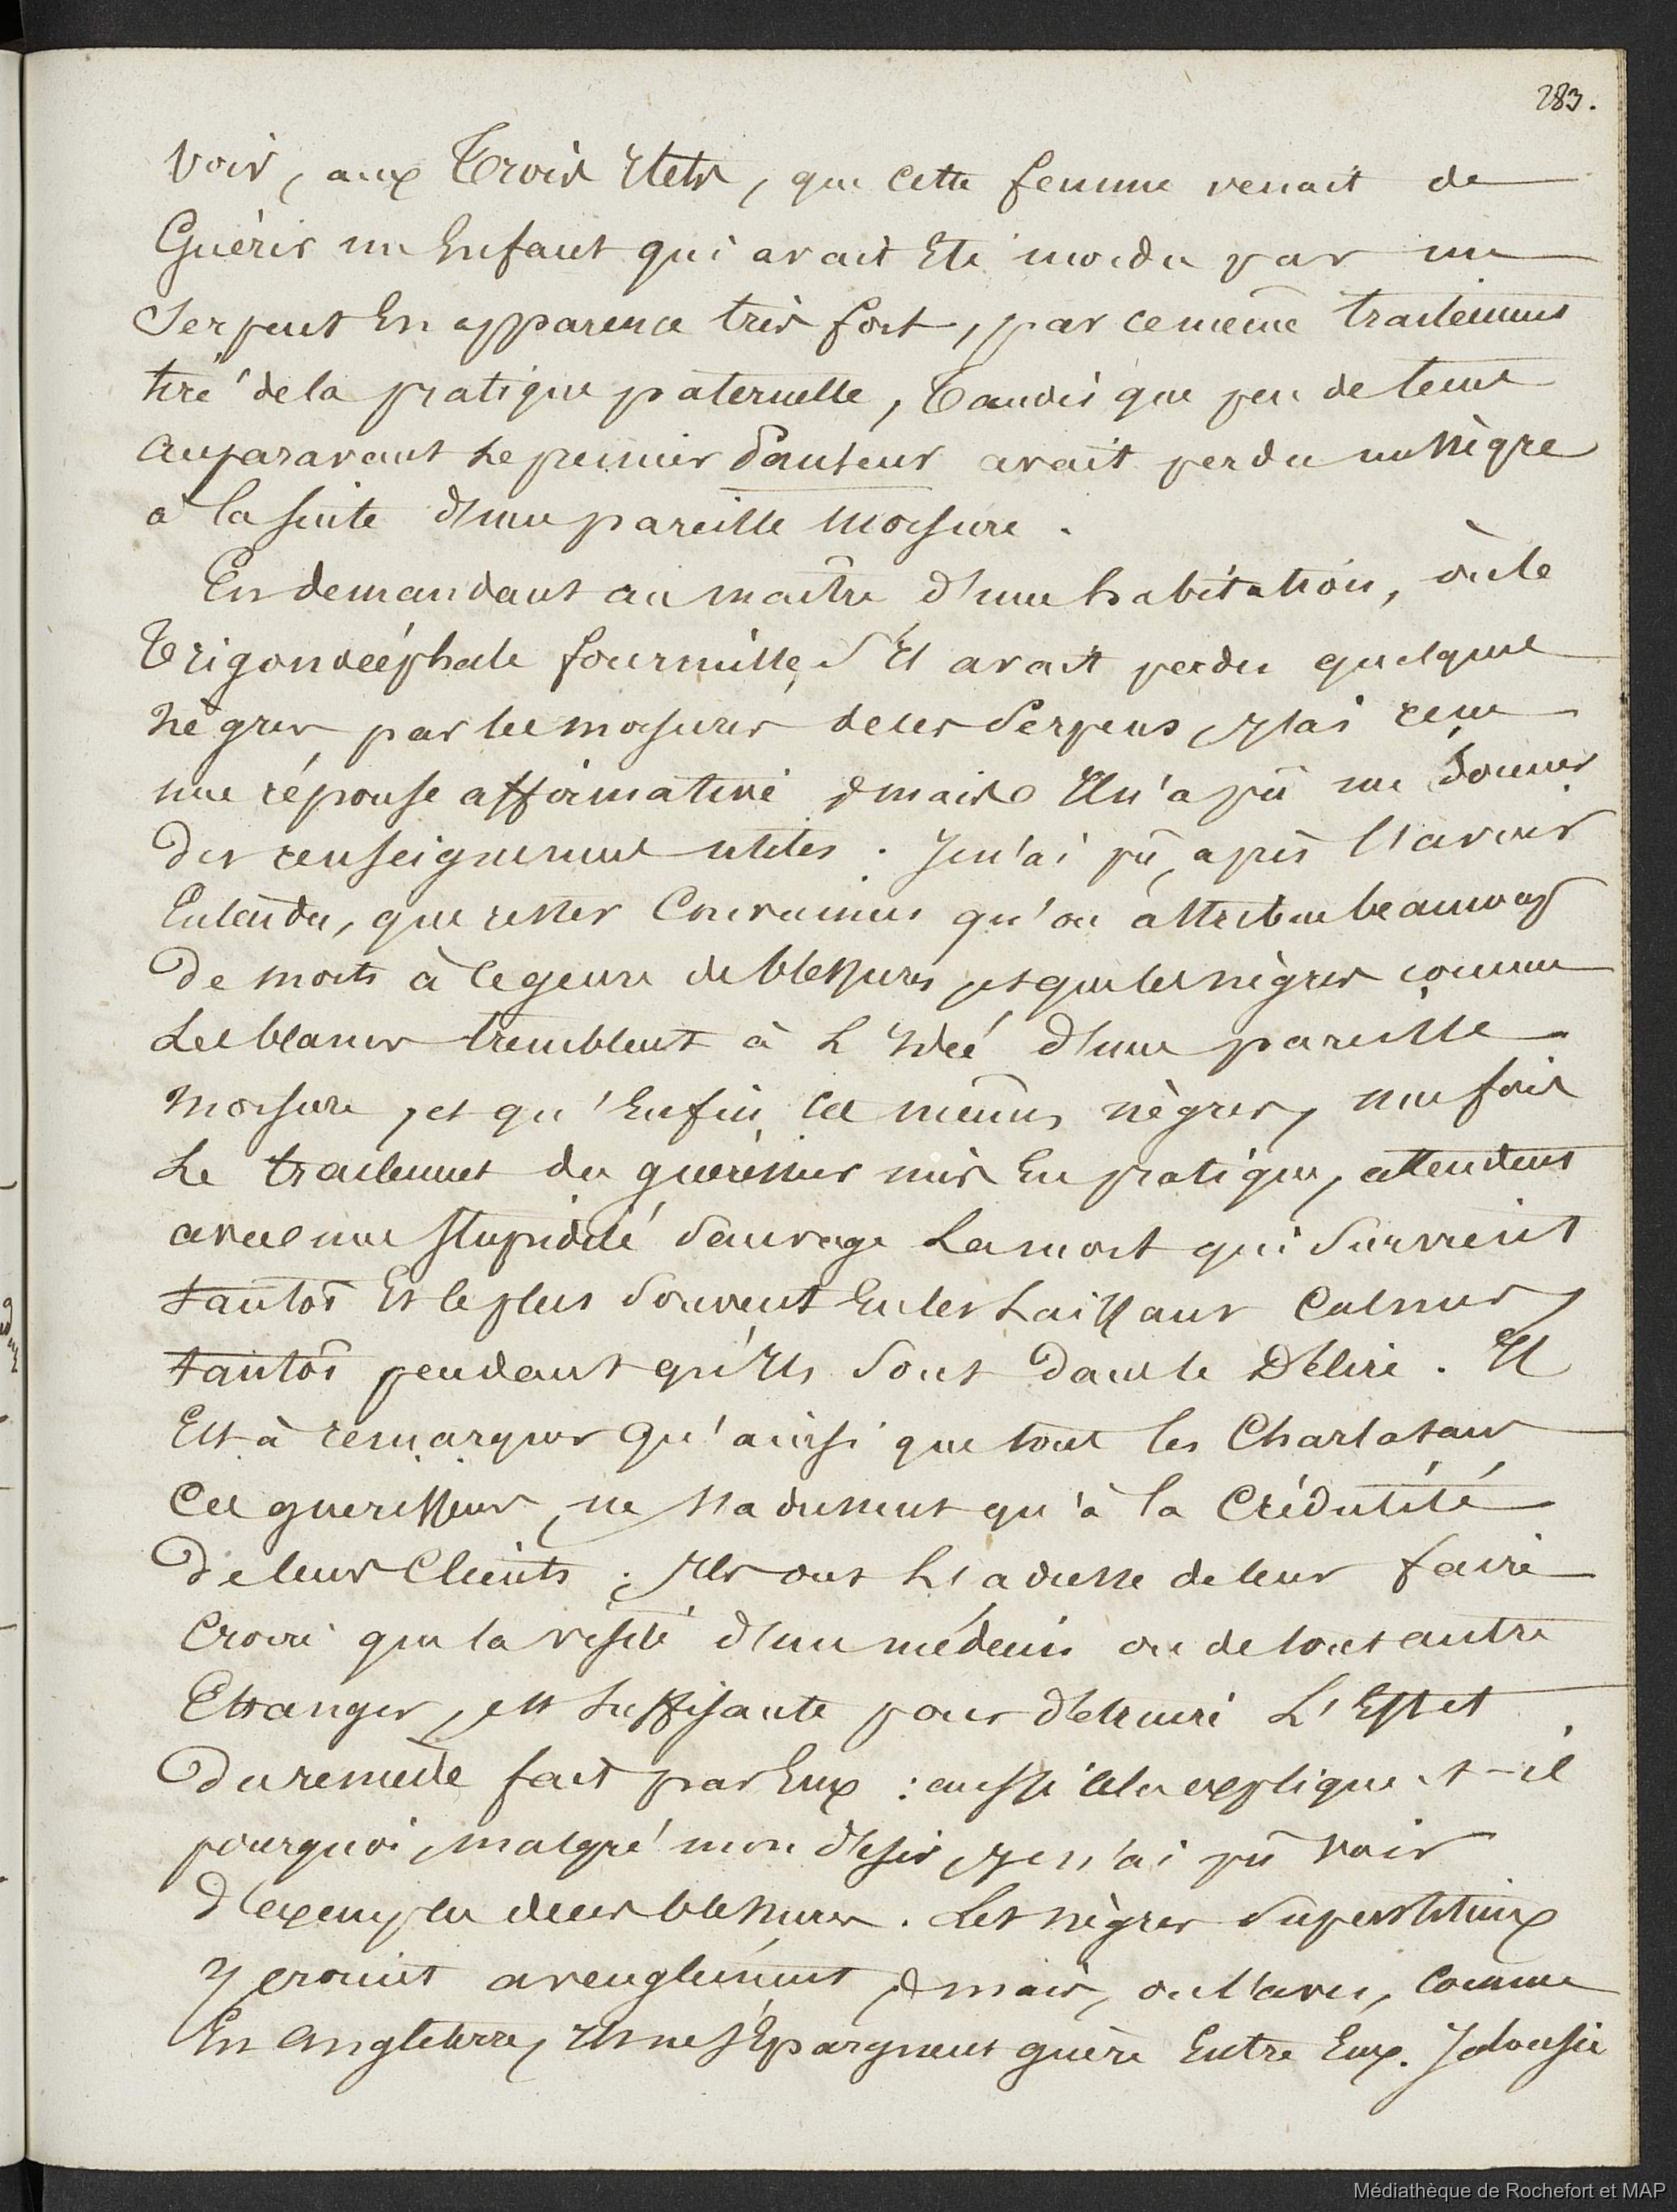 283.
voir, aux Trois Ilets, que cette femme venait de
Guérir un Enfant qui avait Eté mordu par un
Serpent En apparence très fort, par ce même traitement
tiré de la pratique paternelle, Tandis que peu de tems
auparavant Le premier Panseur avait perdu un Nègre
à la suite d'une pareille Morsure.
En demandant au maître d'une habitation, où le
Trigonocéphale fourmille, S'Il avait perdu quelques
Nègres par les morsures de ces Serpens, J'ai reçu
une réponse affirmative ; mais Il n'a pû me Donner
Des renseignemens utiles. Je n'ai pû, après l'avoir
Entendu, que rester Convaincu qu'on attribue beaucoup
De morts à ce genre de blessures, et que les nègres comme
Les blancs tremblent à L'Idée d'une pareille
Morsure, et qu'Enfin, ces mêmes nègres, une fois
Le traitement du guérisseur mis En pratique, attendent
avec une Stupidité Sauvage La mort qui Survient
tantôt Et le plus Souvent En les Laissant Calmes,
tantôt pendant qu'Ils Sont Dans le Délire. Il
Est à remarquer Qu'ainsi que tous les Charlatans
Ces guerisseurs, ne s'adressent qu'à la Crédulité
De leurs Clients ; Ils ont L'adresse de leur faire
Croire que la visite d'un médecin ou de tout autre
Etranger, est Suffisante pour détruire L'Effet
Du remède fait par Eux : aussi cela explique-t-il
pourquoi, malgré mon désir, Je n'ai pû voir
D'exemples de ces blessures. Les nègres Superstitieux
y croient aveuglément ; mais, on l'a vu, Comme
En Angleterre, Ils ne s'Epargnent guère Entre Eux. Jalousie
Médiathèque de Rochefort et MAP